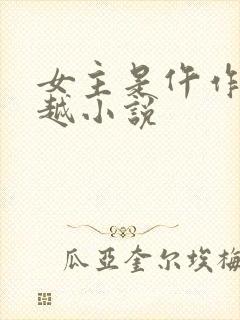 女主是仵作
越小说
瓜亚奎尔埃梅